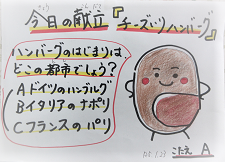 今日の献立『チーズ入りハンバーグ』
ハンバーグのはじまりは
どこの都市でしょう?
Aドイツのハンブルグ
Bイタリアのナポリ
Cフランスのパリ
こたえ A